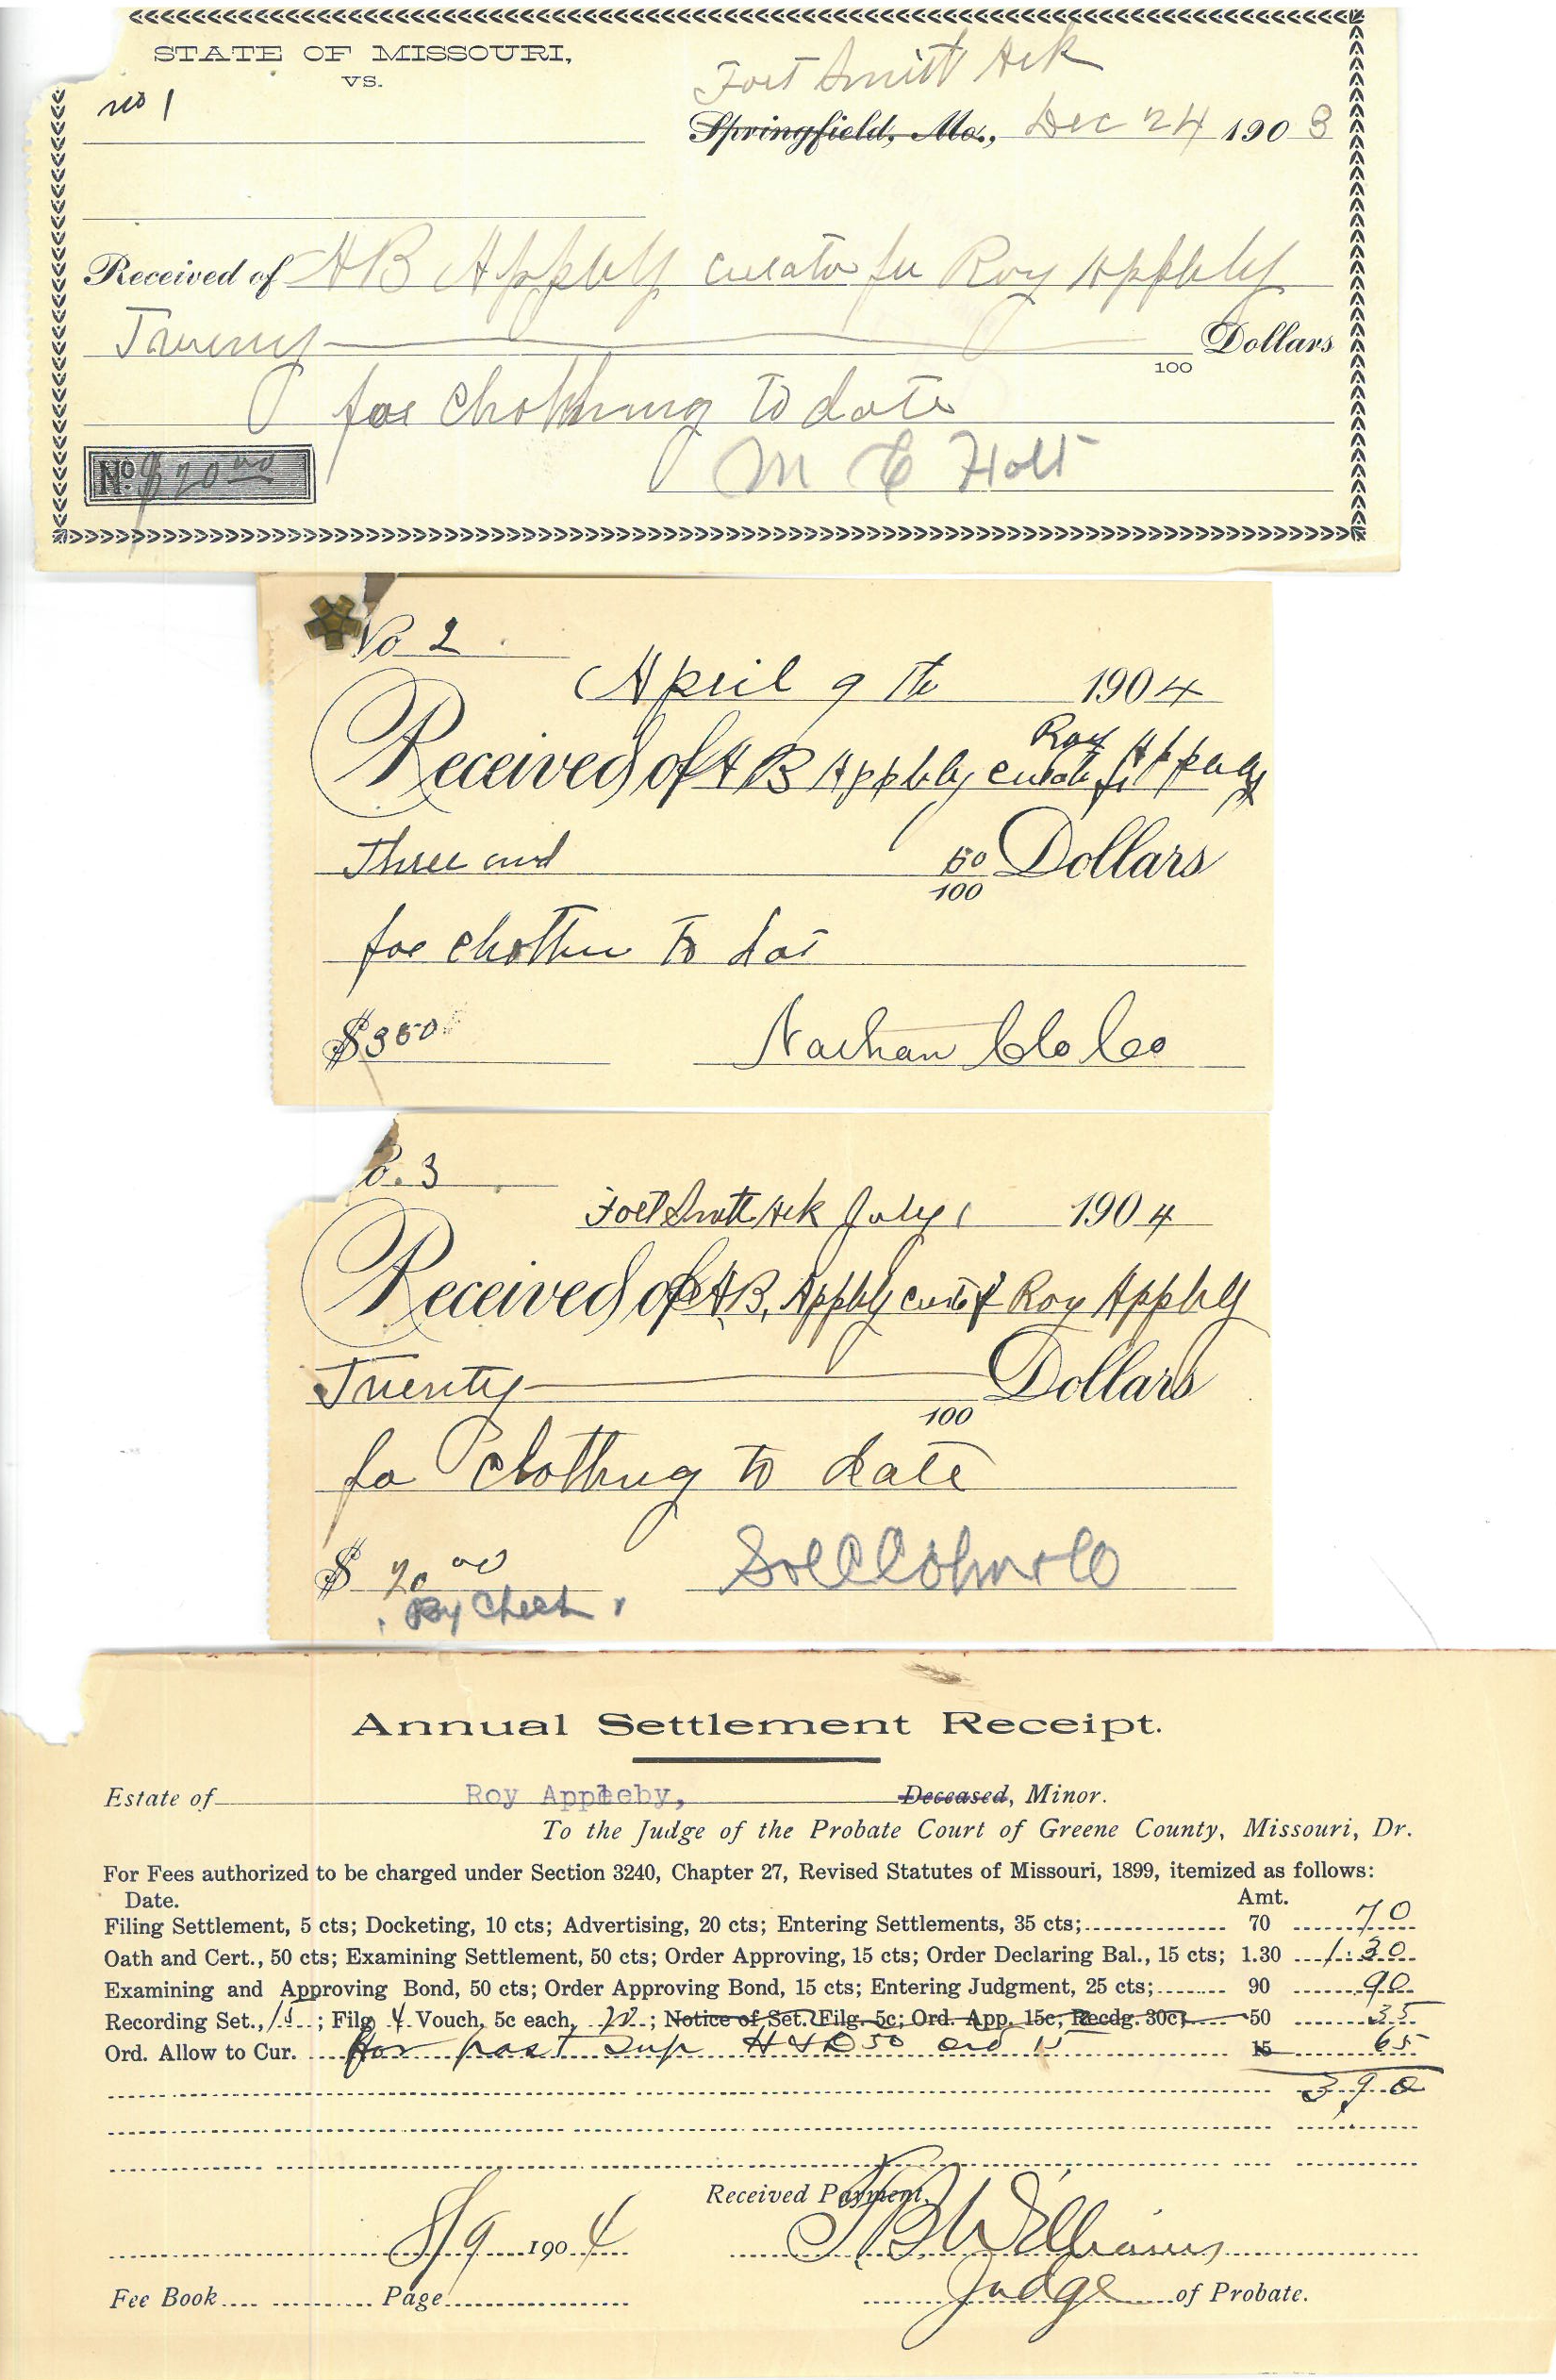 STATE OF MISSOURI,
VS.
no 1
Fort Smith Ark
Springfield, Mo., Dec 24 1903
Received of H B Appleby curator for Roy Appleby
Twenty Dollars
100
for Clothing to date
No. $20 00
M E Holt
No 2
April 9 th 1904
Roy
Received of H B Appleby curator for Appleby
Three and 50 Dollars
100
for Clothing to dat
$3 50
Nathan Clo Co
o. 3
Fort Smith Ark July 1 1904
Received of H B. Appleby curat of Roy Appleby
Twenty Dollars
100
for Clothing to date
$ 20 00
By Check
Annual Settlement Receipt.
Estate of Roy Appleby, Deceased, Minor.
To the Judge of the Probate Court of Greene County, Missouri, Dr.
For Fees authorized to be charged under Section 3240, Chapter 27, Revised Statutes of Missouri, 1899, itemized as follows:
Date. Amt.
Filing Settlement, 5 cts; Docketing, 10 cts; Advertising, 20 cts; Entering Settlements, 35 cts; 70 70
Oath and Cert., 50 cts; Examining Settlement, 50 cts; Order Approving, 15 cts; Order Declaring Bal., 15 cts; 1.30 1.30
Examining and Approving Bond, 50 cts; Order Approving Bond, 15 cts; Entering Judgment, 25 cts; 90 90
Recording Set., 15; Filg 4 Vouch, 5c each, 20; Notice of Set. Filg. 5c; Ord. App. 15c, Recdg. 30c; 50 35
Ord. Allow to Cur. for past Sup H & D 50 ord 15 15 65
3 90
Received Payment,
8/9 1904
Williams
Fee Book Page
Judge of Probate.